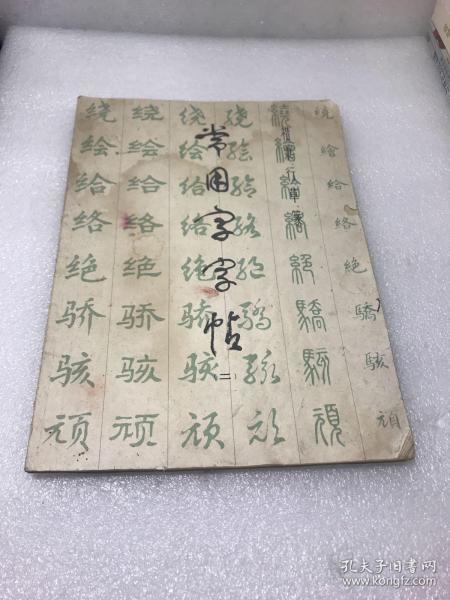 常用字字帖
二
绕 绕 绕 绕 繞 绕
绘 绘 绘 绘 繪 繪
给 给 给 给 給 給
络 络 络 络 絡
绝 绝 绝 绝 絕 絕
骄 骄 骄 驕 驕 驕
骇 骇 骇 駭 駭 駭
顽 顽 顽 顽 頑 頑
孔夫子旧书网
www.kongfz.com